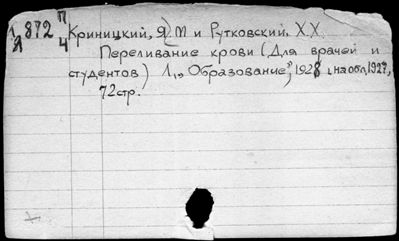 1/Я 872 П/Ч Криницкий, Я. М и Рутковский. Х. Х.
Переливание крови (Для врачей и
студентов) Л., „Образование", 1928 [на обл. 1927,
72 стр.